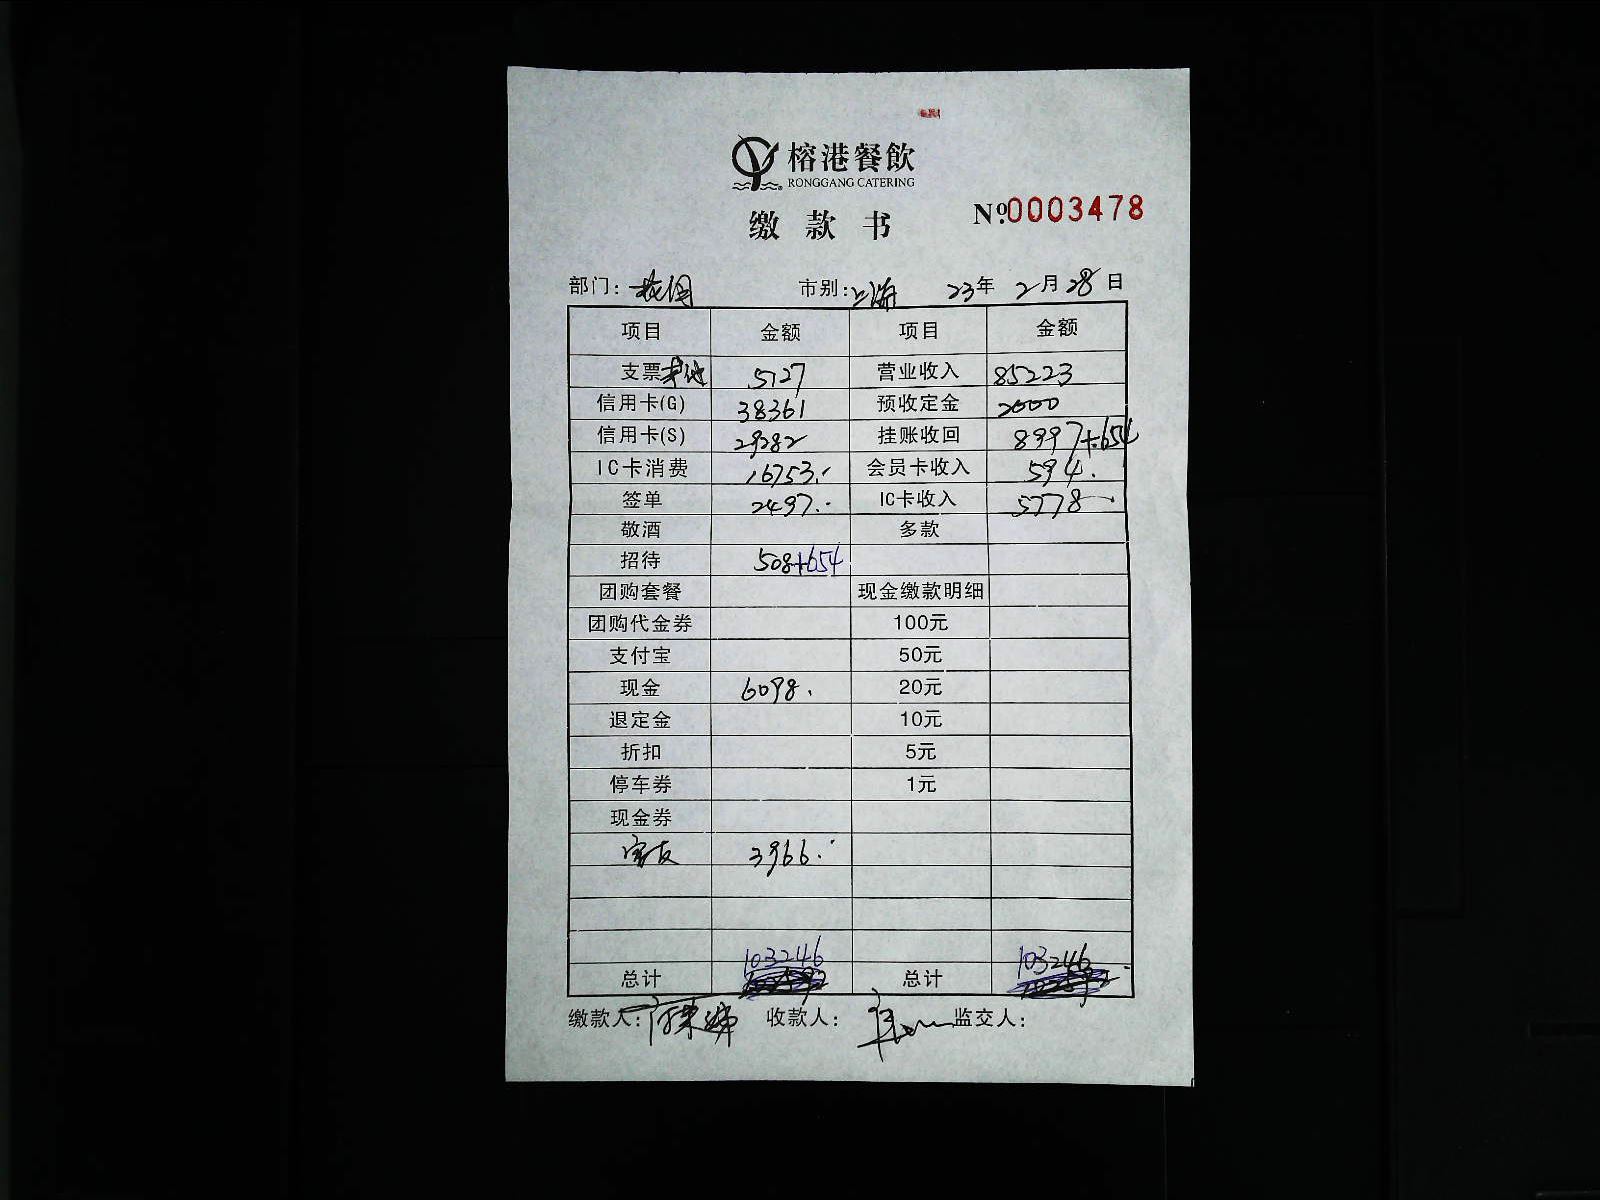 榕港餐飲
RONGGANG CATERING
缴款书 №0003478
部门: 市别:上海 23年 2月28日
项目 金额 项目 金额
支票 5127 营业收入 85223
信用卡(G) 38361 预收定金 2000
信用卡(S) 29282 挂账收回 8997+654
IC卡消费 16753.- 会员卡收入 594.
签单 2497.- IC卡收入 5778
敬酒 多款
招待 508+654
团购套餐 现金缴款明细
团购代金券 100元
支付宝 50元
现金 6098. 20元
退定金 10元
折扣 5元
停车券 1元
现金券
3966.-
103246 103246
总计 总计
缴款人: 收款人: 监交人: